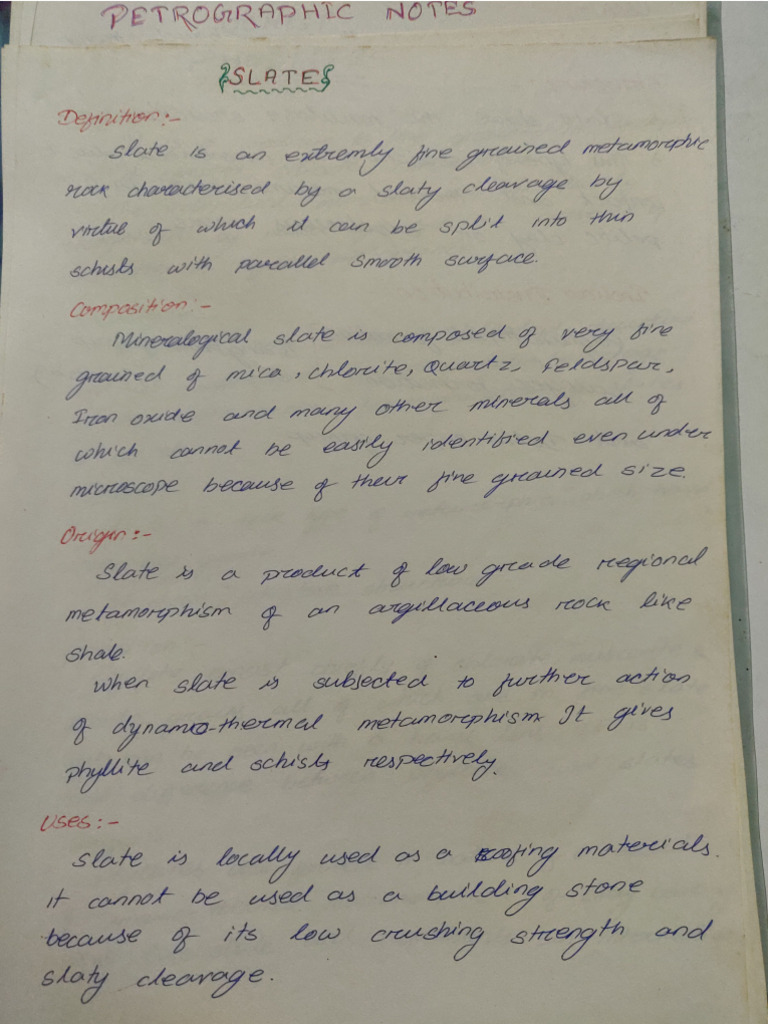 PETROGRAPHIC NOTES
SLATE
Definition:-
Slate is an extremly fine grained metamorphic
rock characterised by a slaty cleavage by
virtue of which it can be split into thin
schists with parallel smooth surface.
Composition:-
Mineralogical slate is composed of very fine
grained of mica, chlorite, Quartz, Feldspar,
Iron oxide and many other minerals all of
which cannot be easily identified even under
microscope because of their fine grained size.
Origin:-
Slate is a product of low grade regional
metamorphism of an argillaceous rock like
shale.
When slate is subjected to further action
of dynamo-thermal metamorphism. It gives
phyllite and schists respectively.
Uses:-
Slate is locally used as a roofing materials.
it cannot be used as a building stone
because of its low crushing strength and
slaty cleavage.